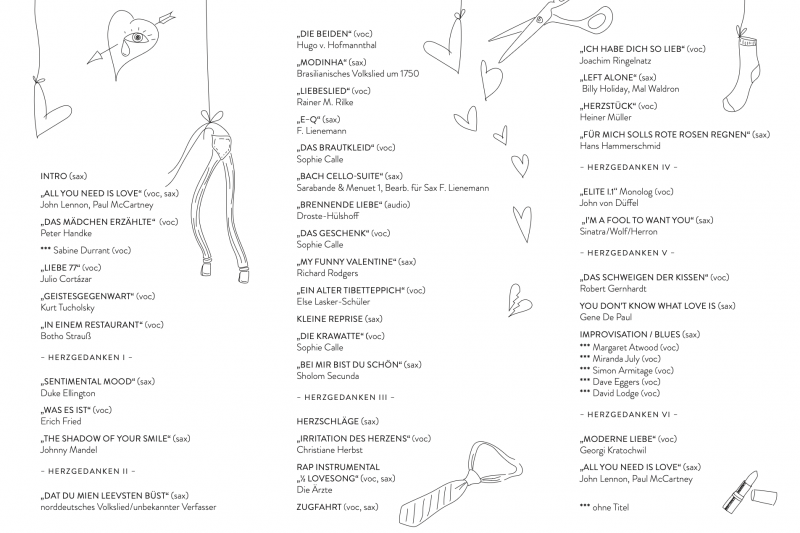 INTRO (sax)
„ALL YOU NEED IS LOVE“ (voc, sax)
John Lennon, Paul McCartney
„DAS MÄDCHEN ERZÄHLTE“ (voc)
Peter Handke
*** Sabine Durrant (voc)
„LIEBE 77“ (voc)
Julio Cortázar
„GEISTESGEGENWART“ (voc)
Kurt Tucholsky
„IN EINEM RESTAURANT“ (voc)
Botho Strauß
– HERZGEDANKEN I –
„SENTIMENTAL MOOD“ (sax)
Duke Ellington
„WAS ES IST“ (voc)
Erich Fried
„THE SHADOW OF YOUR SMILE“ (sax)
Johnny Mandel
– HERZGEDANKEN II –
„DAT DU MIEN LEEVSTEN BÜST“ (sax)
norddeutsches Volkslied/unbekannter Verfasser
„DIE BEIDEN“ (voc)
Hugo v. Hofmannthal
„MODINHA“ (sax)
Brasilianisches Volkslied um 1750
„LIEBESLIED“ (voc)
Rainer M. Rilke
„E–Q“ (sax)
F. Lienemann
„DAS BRAUTKLEID“ (voc)
Sophie Calle
„BACH CELLO-SUITE“ (sax)
Sarabande & Menuet 1, Bearb. für Sax F. Lienemann
„BRENNENDE LIEBE“ (audio)
Droste-Hülshoff
„DAS GESCHENK“ (voc)
Sophie Calle
„MY FUNNY VALENTINE“ (sax)
Richard Rodgers
„EIN ALTER TIBETTEPPICH“ (voc)
Else Lasker-Schüler
KLEINE REPRISE (sax)
„DIE KRAWATTE“ (voc)
Sophie Calle
„BEI MIR BIST DU SCHÖN“ (sax)
Sholom Secunda
– HERZGEDANKEN III –
HERZSCHLÄGE (sax)
„IRRITATION DES HERZENS“ (voc)
Christiane Herbst
RAP INSTRUMENTAL
„½ LOVESONG“ (voc, sax)
Die Ärzte
ZUGFAHRT (voc, sax)
„ICH HABE DICH SO LIEB“ (voc)
Joachim Ringelnatz
„LEFT ALONE“ (sax)
Billy Holiday, Mal Waldron
„HERZSTÜCK“ (voc)
Heiner Müller
„FÜR MICH SOLLS ROTE ROSEN REGNEN“ (sax)
Hans Hammerschmid
– HERZGEDANKEN IV –
„ELITE I.1“ Monolog (voc)
John von Düffel
„I'M A FOOL TO WANT YOU“ (sax)
Sinatra/Wolf/Herron
– HERZGEDANKEN V –
„DAS SCHWEIGEN DER KISSEN“ (voc)
Robert Gernhardt
YOU DON'T KNOW WHAT LOVE IS (sax)
Gene De Paul
IMPROVISATION / BLUES (sax)
*** Margaret Atwood (voc)
*** Miranda July (voc)
*** Simon Armitage (voc)
*** Dave Eggers (voc)
*** David Lodge (voc)
– HERZGEDANKEN VI –
„MODERNE LIEBE“ (voc)
Georgi Kratochwil
„ALL YOU NEED IS LOVE“ (sax)
John Lennon, Paul McCartney
*** ohne Titel